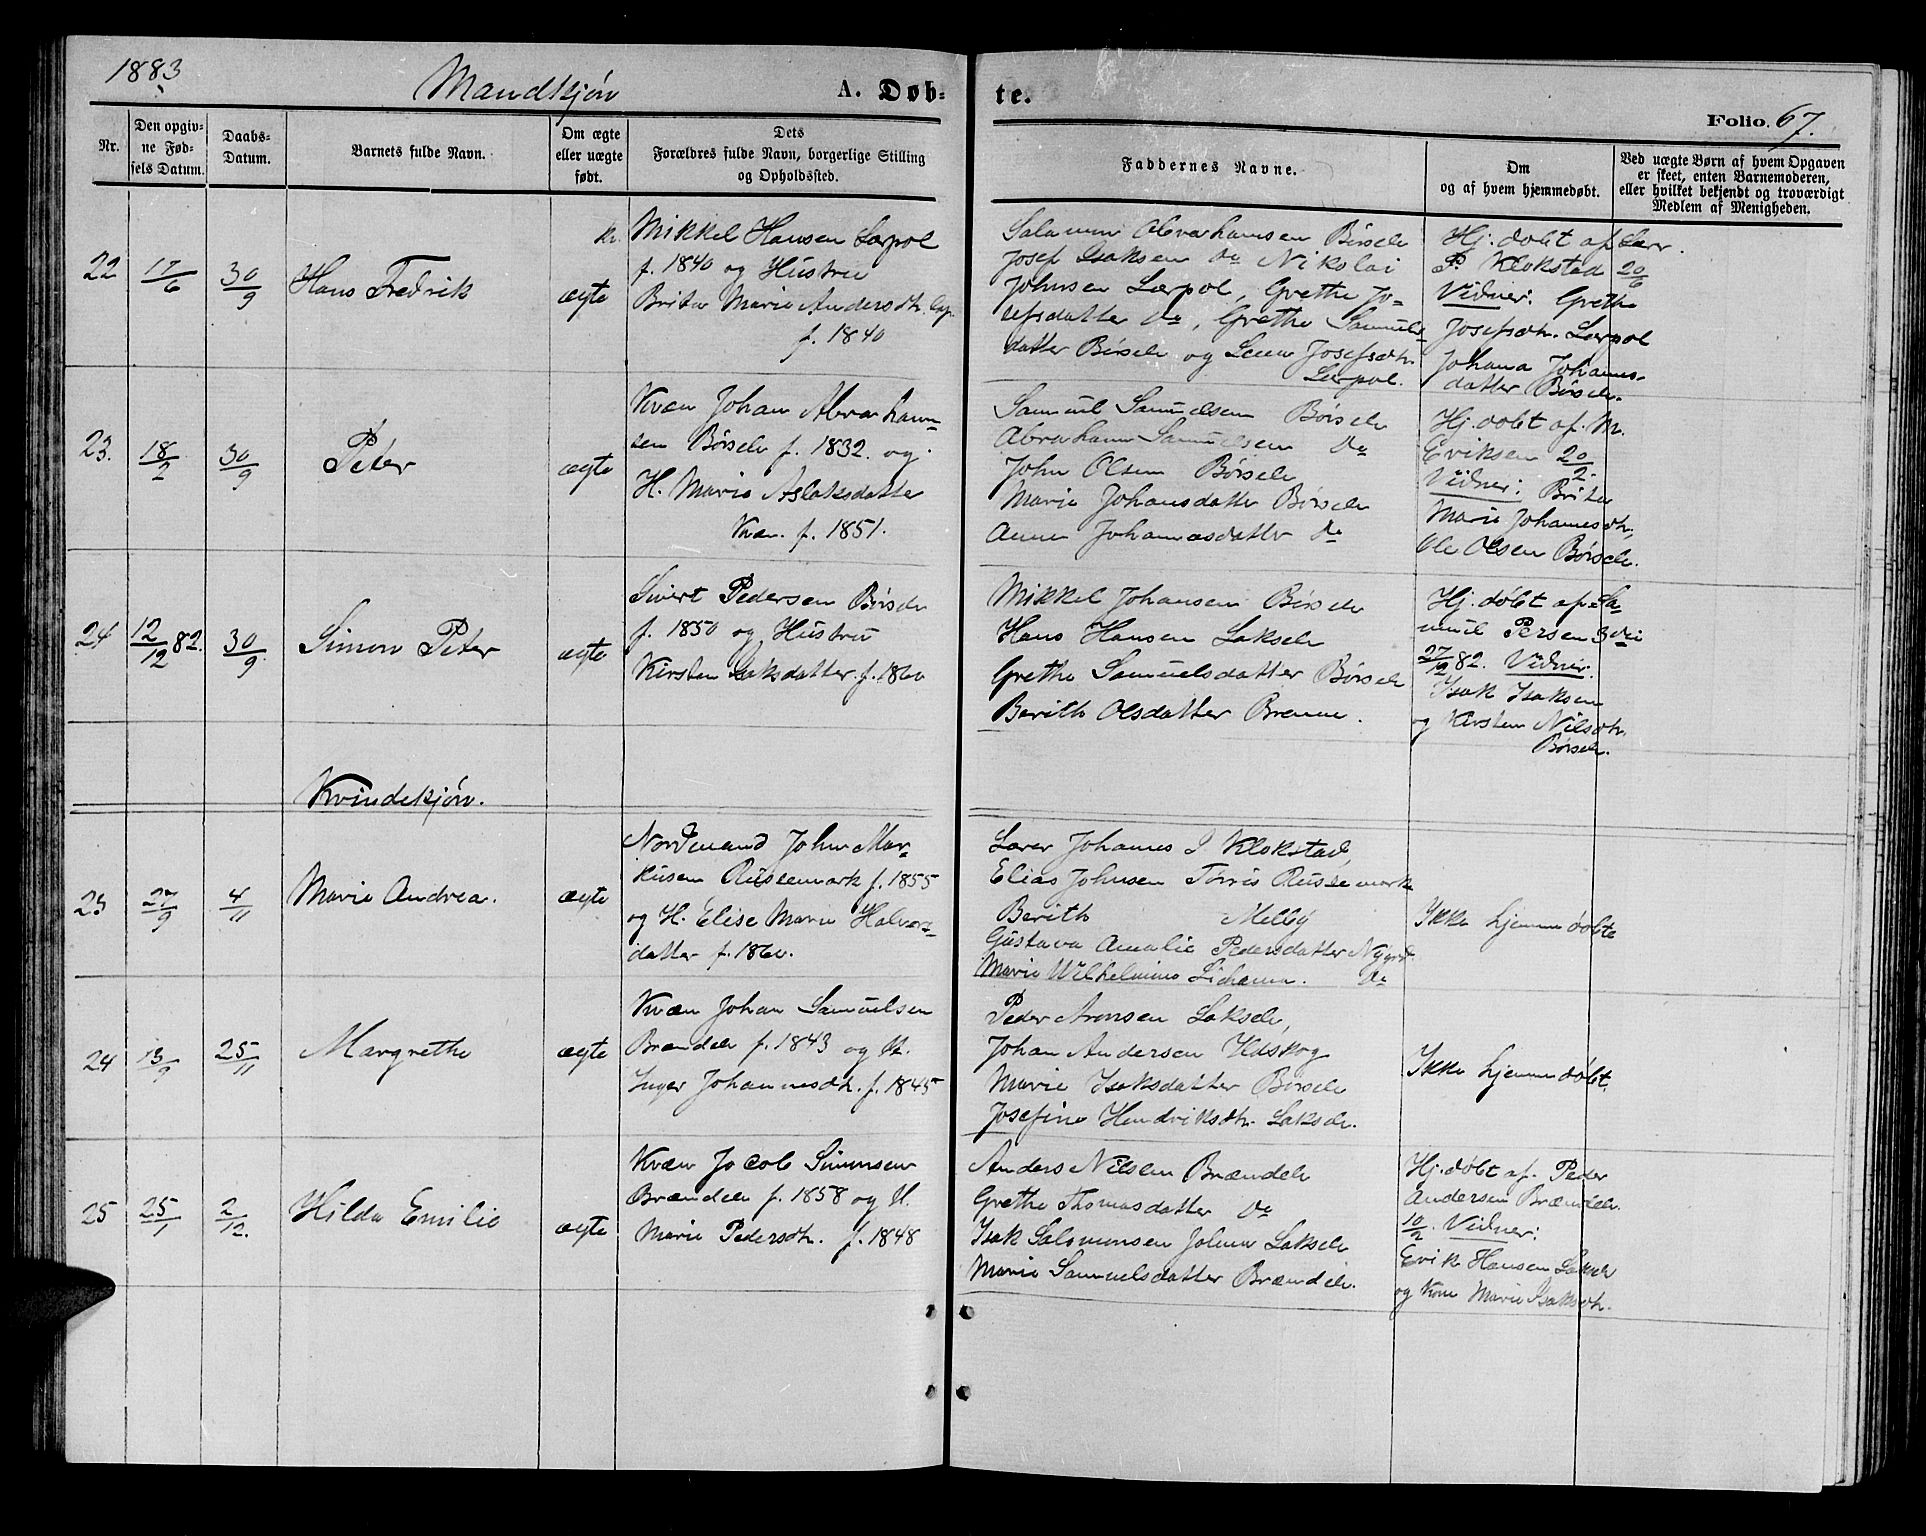 1883
Mandkjøn
A. Døb-
te.
Folio. 67.
Nr.
Den opgiv-
ne Fød-
sels Datum.
Daabs-
Datum.
Barnets fulde Navn.
Om ægte
eller uægte
født.
Dets
Forældres fulde Navn, borgerlige Stilling
og Opholdssted.
Faddernes Navne.
Om
og af hvem hjemmedøbt.
Ved uægte Børn af hvem Opgaven
er skeet, enten Barnemoderen,
eller hvilket bekjendt og troværdigt
Medlem af Menigheden.
22
17/6
30/9
Hans Fredrik
ægte
Mikkel Hansen Lærpol
f. 1840 og Hustru
Brita Marie Andersdtr.
f. 1840
Salamon Abrahamsen Børsele
Josef Isaksen Do Nikolai
Johnsen Lærpol, Grethe Jo-
sefsdatter Do, Grethe Samuels-
datter Børsele og Lena Josefsdtr.
Lærpol.
Hj. døbt af Lær.
P. Klokstad 20/6
Vidner: Grethe
Josefsdtr. Lærpol
Johana Johannes-
datter Børsele.
23.
18/2
30/9
Peter
ægte
Kvæn Johan Abraham-
sen Børsele f. 1832. og
H. Marie Aslaksdatter
Kvæn. f. 1851.
Samuel Samuelsen Børsele
Abraham Samuelsen Do
John Olsen Børsele
Marie Johansdatter Børsele
Anna Johannasdatter Do
Hj. døbt af. M.
Eriksen 20/2.
Vidner: Brita
Marie Johannesdtr,
Ole Olsen Børsele.
24
12/12 82.
30/9
Simon Peter
ægte
Sivert Pedersen Børsele
f. 1850 og Hustru
Kirsten Isaksdatter. f. 1860
Mikkel Johansen Børsele
Hans Hansen Laksele
Grethe Samuelsdatter Børsele
Berith Olsdatter Brenne.
Hj. døbt af Sa-
muel Persen
27/12 82. Vidner:
Isak Isaksen
og Kirsten Nilsdtr.
Børsele.
Kvindekjøn.
23
27/9
4/11
Marie Andrea.
ægte
Nordmand John Mar-
kusen Russemark f. 1855
og H. Elise Marie Halvors-
datter f. 1860.
Lærer Johannes P Klokstad,
Elias Johnsen Tørris Russemark
Berith Melby
Gustava Amalie Pedersdatter Nygrd.
Marie Wilhelmine Do
Ikke hjemmedøbt
24
13/9
25/11
Margrethe
ægte
Kvæn Johan Samuelsen
Brændele f. 1843 og H.
Inger Johannesdtr. f. 1845
Peder Aronsen Laksele,
Johan Andersen Udskog
Marie Isaksdatter Børsele
Josefine Hendriksdtr. Laksele.
Ikke hjemmedøbt.
25
25/1
2/12.
Hilda Emilie
ægte
Kvæn Jacob Simonsen
Brændele f. 1858 og H.
Marie Pedersdtr. f. 1848
Anders Nilsen Brændele
Grethe Thomasdatter Do
Isak Salomonsen Laksele
Marie Samuelsdatter Brændele.
Hj. døbt af. Peder
Andersen Brændele.
10/2. Vidner:
Erik Hansen Laksele
og Kone Marie Isaksdtr.